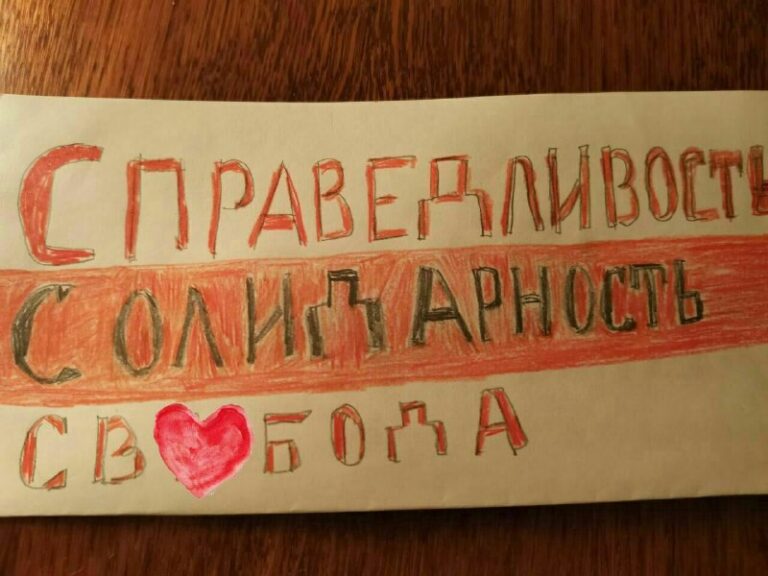 СПРАВЕДЛИВОСТЬ
СОЛИДАРНОСТЬ
СВ❤БОДА